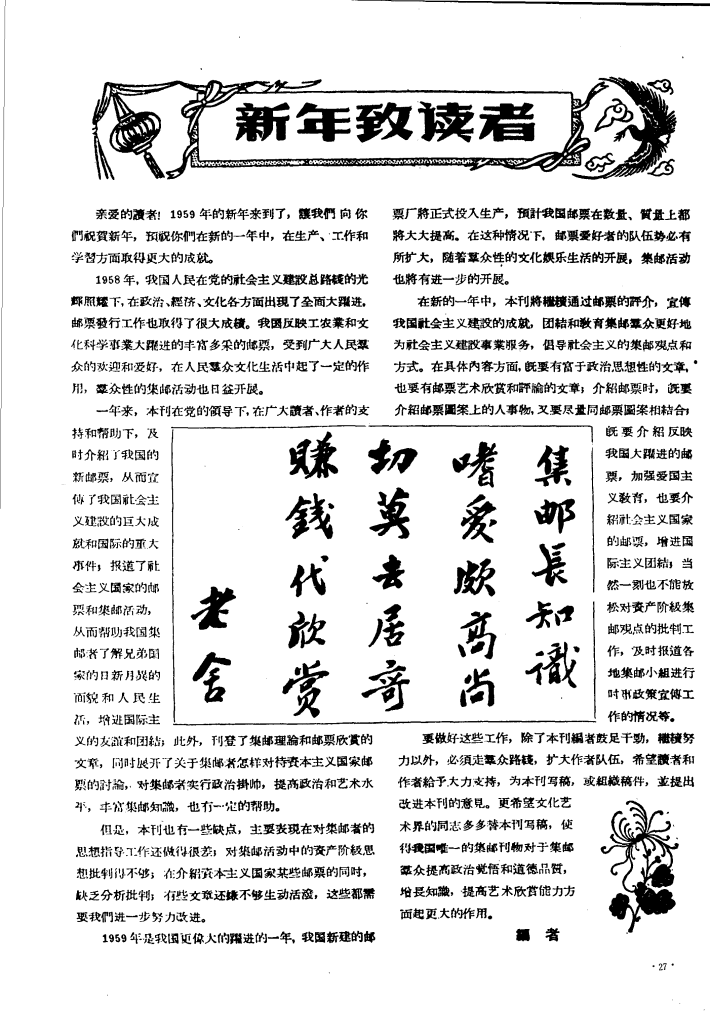 新年致读者
亲爱的讀者！1959年的新年来到了，讓我們向你
們祝賀新年，預祝你們在新的一年中，在生产、工作和
学習方面取得更大的成就。
1958年，我国人民在党的社会主义建設总路綫的光
輝照耀下，在政治、經济、文化各方面出現了全面大躍进。
邮票發行工作也取得了很大成績。我国反映工农業和文
化科学事業大躍进的丰富多采的邮票，受到广大人民羣
众的欢迎和爱好，在人民羣众文化生活中起了一定的作
用，羣众性的集邮活动也日益开展。
一年来，本刊在党的領导下，在广大讀者、作者的支
持和帮助下，及
时介紹了我国的
新邮票，从而宣
传了我国社会主
义建設的巨大成
就和国际的重大
事件；报道了社
会主义国家的邮
票和集邮活动，
从而帮助我国集
邮者了解兄弟国
家的日新月異的
面貌和人民生
活，增进国际主
义的友誼和团結；此外，刊登了集邮理論和邮票欣賞的
文章，同时展开了关于集邮者怎样对待資本主义国家邮
票的討論，对集邮者实行政治掛帅，提高政治和艺术水
平，丰富集邮知識，也有一定的帮助。
但是，本刊也有一些缺点，主要表現在对集邮者的
思想指导工作还做得很差；对集邮活动中的資产阶級思
想批判得不够；在介紹資本主义国家某些邮票的同时，
缺乏分析批判；有些文章还嫌不够生动活潑，这些都需
要我們进一步努力改进。
1959年是我国更偉大的躍进的一年，我国新建的邮
票厂將正式投入生产，預計我国邮票在数量、質量上都
將大大提高。在这种情况下，邮票爱好者的队伍势必有
所扩大，随着羣众性的文化娱乐生活的开展，集邮活动
也將有进一步的开展。
在新的一年中，本刊將繼續通过邮票的評介，宣傳
我国社会主义建設的成就，团結和敎育集邮羣众更好地
为社会主义建設事業服务，倡导社会主义的集邮观点和
方式。在具体內容方面，旣要有富于政治思想性的文章，
也要有邮票艺术欣赏和評論的文章；介紹邮票时，旣要
介紹邮票圖案上的人事物，又要尽量同邮票圖案相結合；
旣要介紹反映
我国大躍进的邮
票，加强爱国主
义敎育，也要介
紹社会主义国家
的邮票，增进国
际主义团結；当
然一刻也不能放
松对資产阶級集
邮观点的批判工
作，及时报道各
地集邮小組进行
时事政策宣传工
作的情况等。
要做好这些工作，除了本刊編者鼓足干勁，繼續努
力以外，必須走羣众路綫，扩大作者队伍，希望讀者和
作者給予大力支持，为本刊写稿，或組織稿件，並提出
改进本刊的意見。更希望文化艺
术界的同志多多替本刊写稿，使
得我国唯一的集邮刊物对于集邮
羣众提高政治觉悟和道德品質，
增長知識，提高艺术欣賞能力方
面起更大的作用。
編者
集邮長知識
嗜爱颇高尚
切莫去居奇
賺錢代欣赏
老舍
·27·